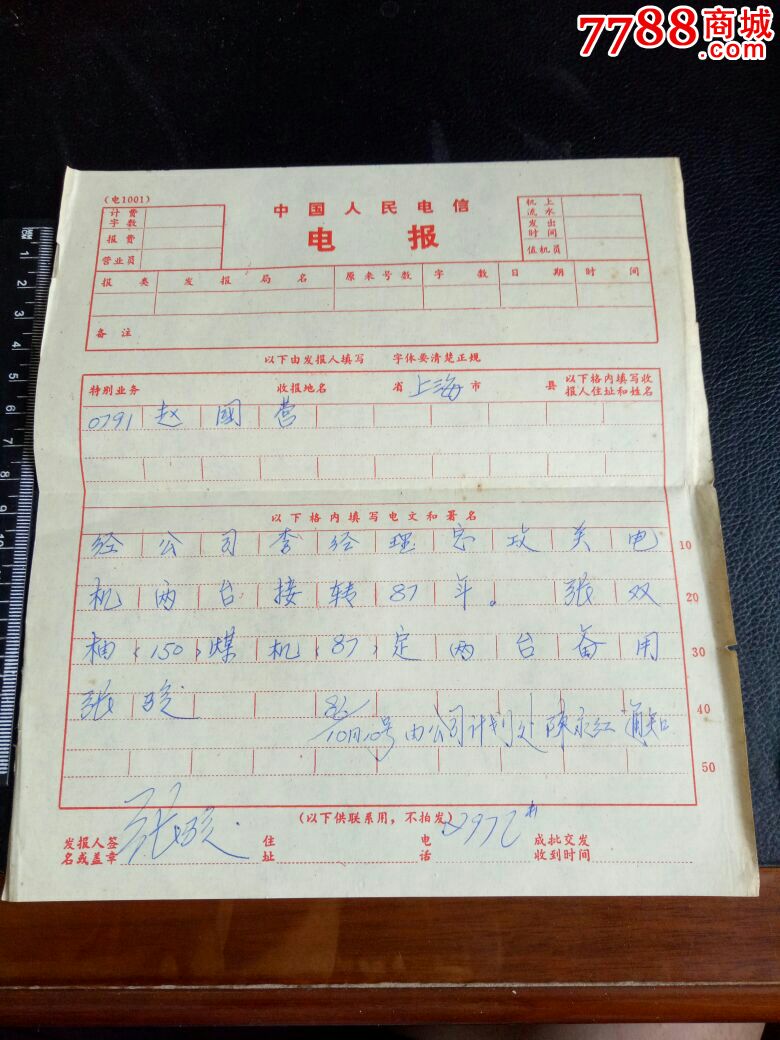 7788商城
.com
(电1001)
中国人民电信
电 报
计费字数
报费
营业员
机上流水
发出时间
值机员
报类 发报局名 原来号数 字数 日期 时间
备注
以下由发报人填写 字体要清楚正规
特别业务 收报地名 省 上海 市 县 以下格内填写收报人住址和姓名
0791 赵 國 营
以下格内填写电文和署名
经 公 司 李 经 理 总 攻 关 电 10
机 两 台 接 转 87 年。 张 双 20
柚 〈150〉 煤 机 〈87〉 定 两 台 备 用 30
张 86/10月10号 由公司计划处陈永红通知 40
50
(以下供联系用，不拍发)
发报人签名或盖章 张 住址 电话 2972 成批交发收到时间
8 1 2 3 4 5 6 7 8 9 10